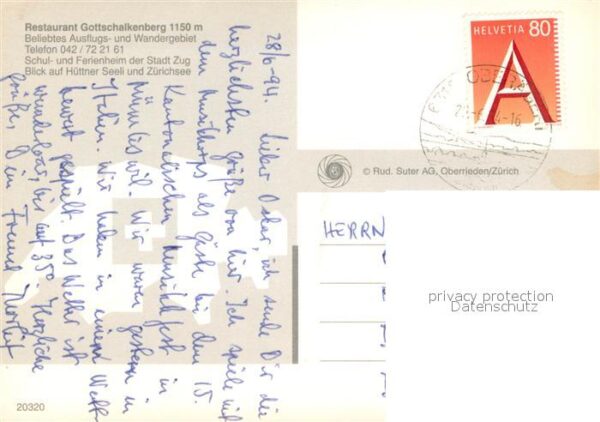 Restaurant Gottschalkenberg 1150 m
Beliebtes Ausflugs- und Wandergebiet
Telefon 042 / 72 21 61
Schul- und Ferienheim der Stadt Zug
Blick auf Hüttner Seeli und Zürichsee
28/6-94. Lieber Oskar, ich sende Dir die
herzlichsten Grüße von hier. Ich spiele mit
dem Musikkorps als Gäste bei dem 15.
Kantonalischen Musikfest in
Wir waren gestern in
Italien. Wir haben in einem Wett-
bewerb gespielt. Das Wetter ist
wunderbar, bis auf 35° Herzliche
Grüße, Dein Freund
HELVETIA 80
A
© Rud. Suter AG, Oberrieden/Zürich
HERRN
privacy protection
Datenschutz
20320